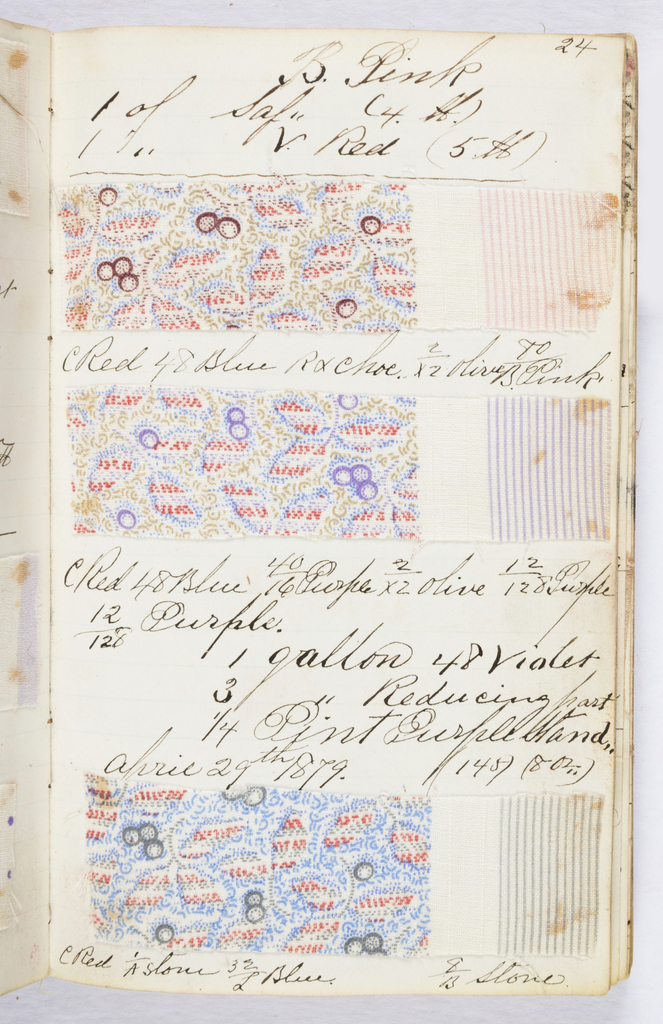 24
B. Pink
1 of Saf,, (4. lb.)
1 ,, V. Red (5 lb)
C Red 48 Blue Rx Choc. 2/X2 Olive 80/B Pink.
C Red 48 Blue 40/16 Purple 2/X2 Olive 12/128 Purple
12/128 Purple.
1 gallon 48 Violet
3 ,, Reducing part
1/4 Pint Purple Stand,,
April 29th 1879. (148) (8 oz.)
C Red 1/A Stone 32/L Blue. 8/B Stone.